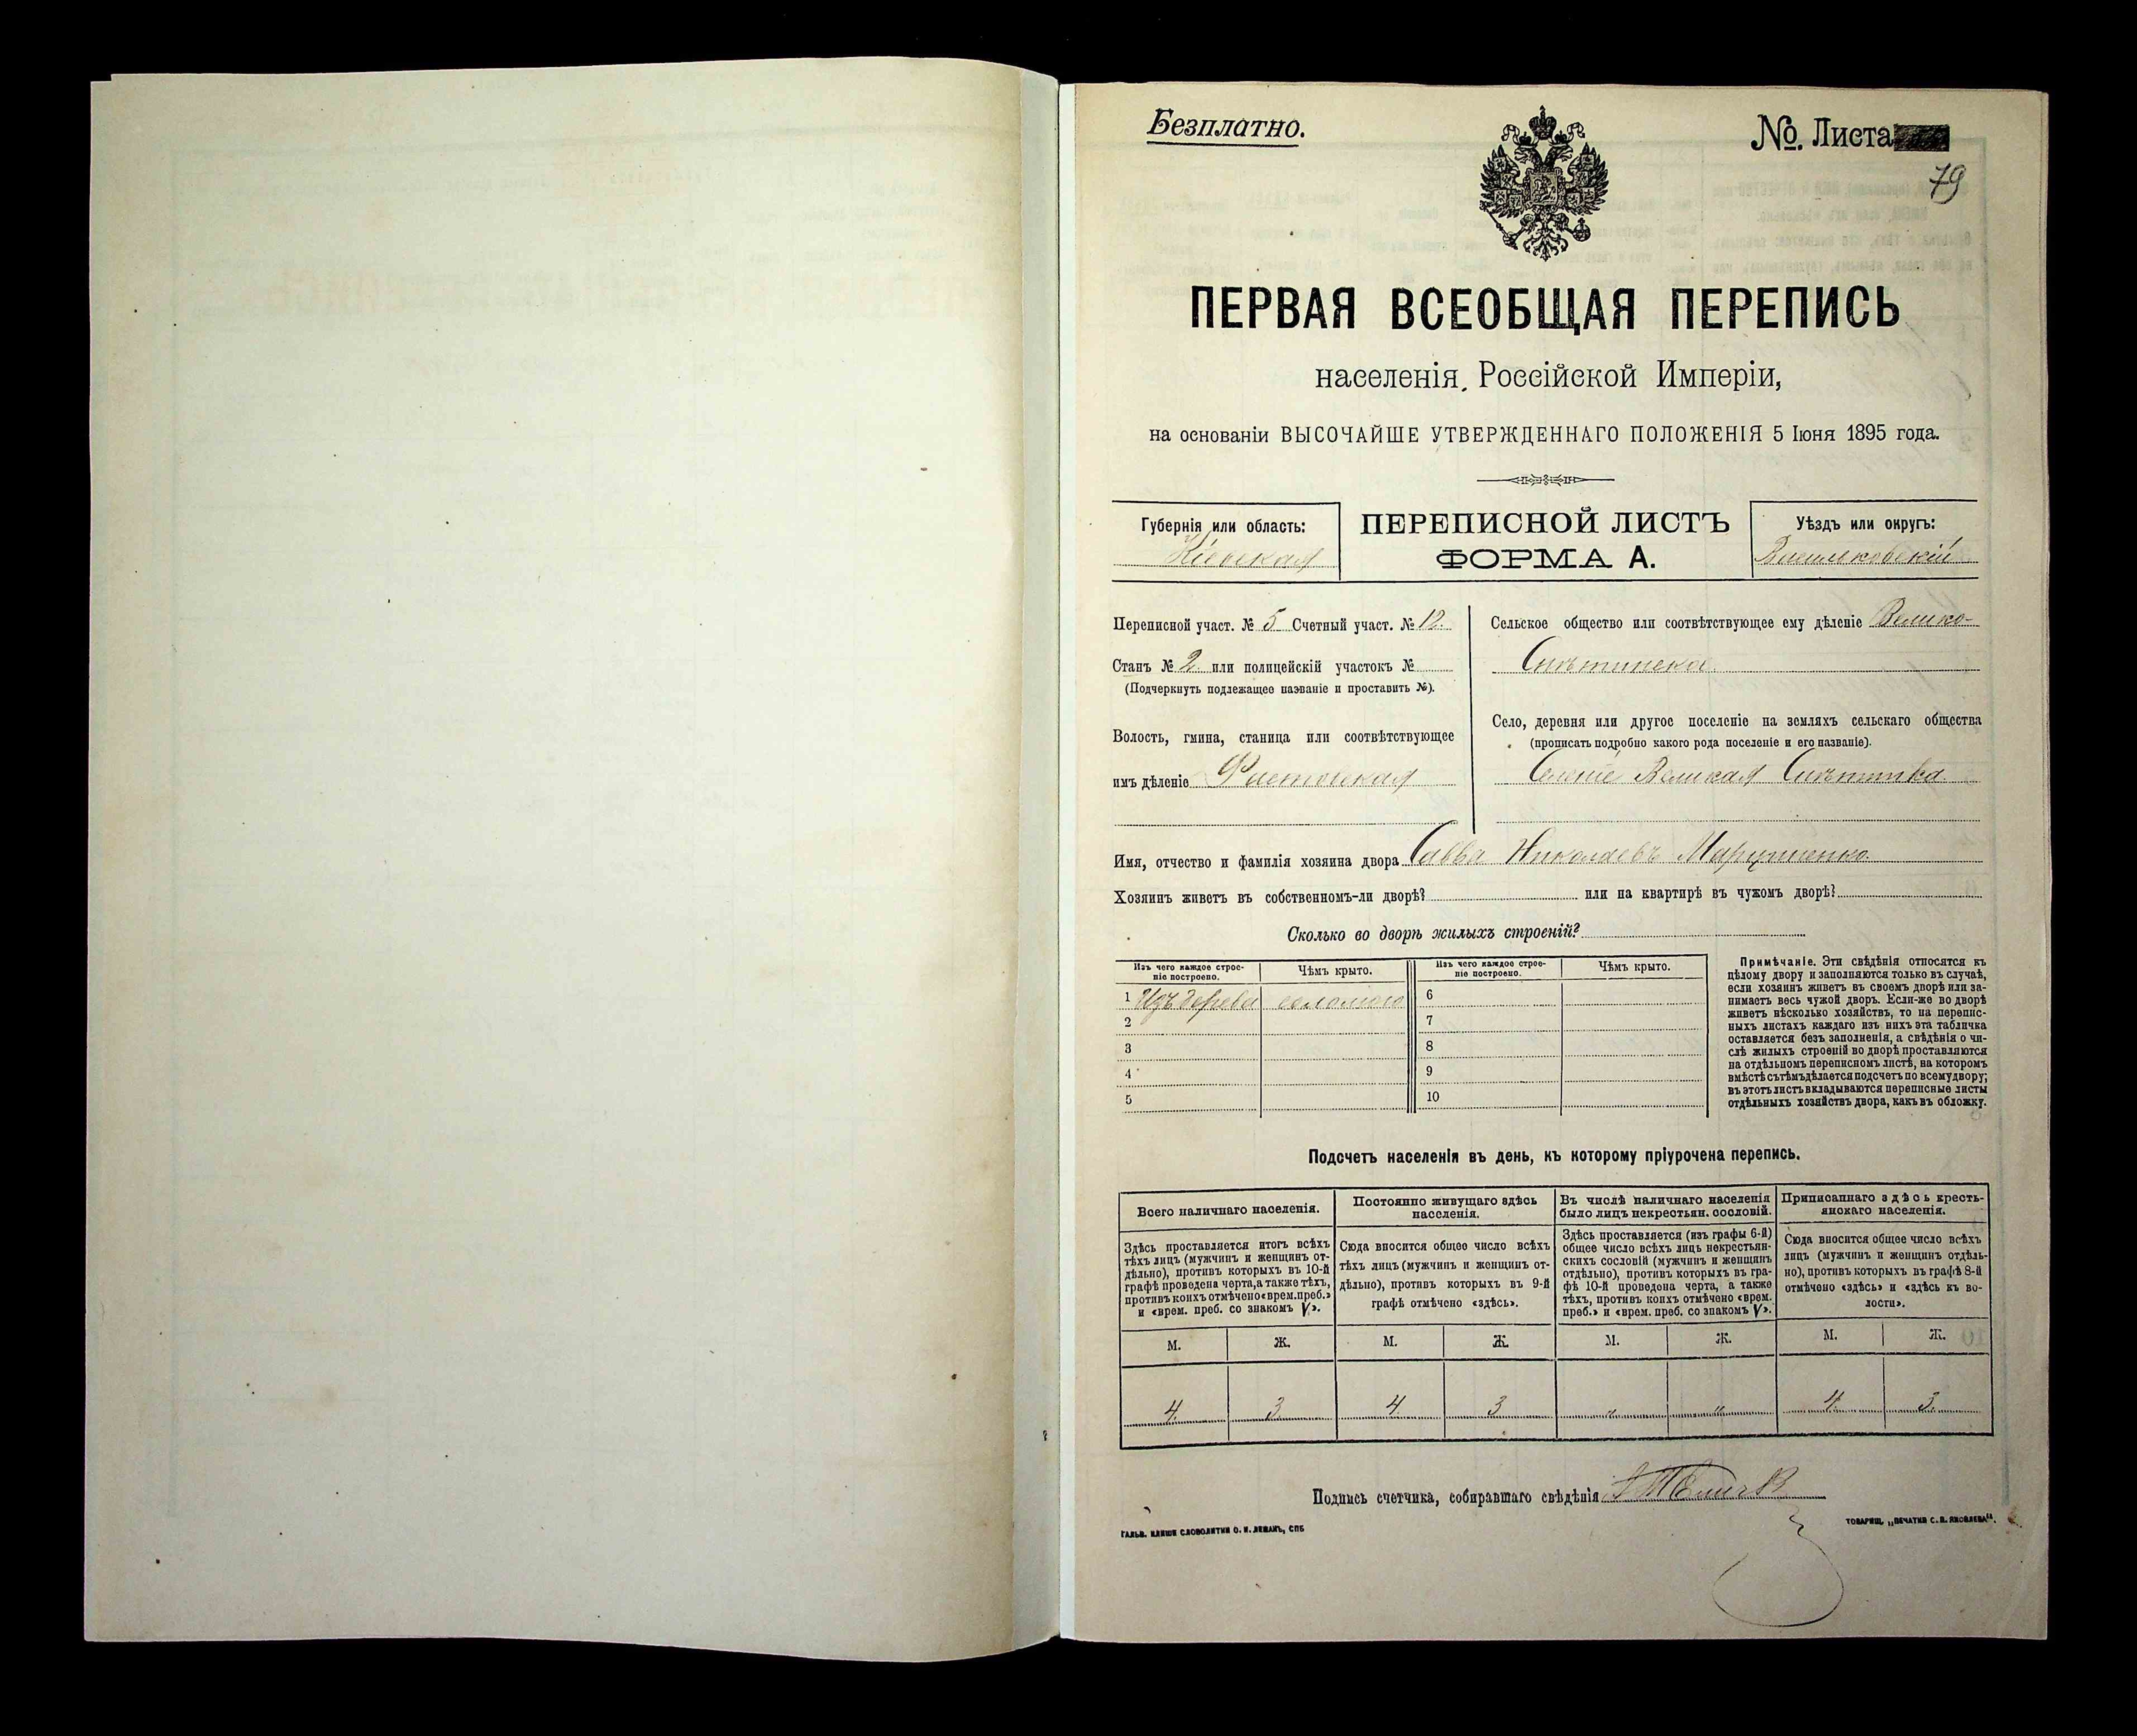 Безплатно.
№ Листа
79
ПЕРВАЯ ВСЕОБЩАЯ ПЕРЕПИСЬ
населенія Россійской Имперіи,
на основаніи ВЫСОЧАЙШЕ УТВЕРЖДЕННАГО ПОЛОЖЕНІЯ 5 Іюня 1895 года.
Губернія или область:
Кіевская
ПЕРЕПИСНОЙ ЛИСТЪ
ФОРМА А.
Уѣздъ или округъ:
Васильковскій
Переписной участ. № 5 Счетный участ. № 12.
Станъ № 2 или полицейскій участокъ №
(Подчеркнуть подлежащее названіе и проставить №).
Волость, гмина, станица или соотвѣтствующее
имъ дѣленіе Фастовская
Сельское общество или соотвѣтствующее ему дѣленіе Велико-
Снѣтинска
Село, деревня или другое поселеніе на земляхъ сельскаго общества
(прописать подробно какого рода поселеніе и его названіе).
Селеніе Великая Снѣтинка
Имя, отчество и фамилія хозяина двора Савва Николаевъ Марущенко
Хозяинъ живетъ въ собственномъ-ли дворѣ? или на квартирѣ въ чужомъ дворѣ?
Сколько во дворѣ жилыхъ строеній?
Изъ чего каждое строе-
ніе построено.
Чѣмъ крыто.
Изъ чего каждое строе-
ніе построено.
Чѣмъ крыто.
1 Изъ дерева соломою 6
2 7
3 8
4 9
5 10
Примѣчаніе. Эти свѣдѣнія относятся къ
цѣлому двору и заполняются только въ случаѣ,
если хозяинъ живетъ въ своемъ дворѣ или за-
нимаетъ весь чужой дворъ. Если-же во дворѣ
живетъ нѣсколько хозяйствъ, то на перепис-
ныхъ листахъ каждаго изъ нихъ эта табличка
оставляется безъ заполненія, а свѣдѣнія о чи-
слѣ жилыхъ строеній во дворѣ проставляются
на отдѣльномъ переписномъ листѣ, на которомъ
вмѣстѣ съ тѣмъ дѣлается подсчетъ по всему двору;
въ этотъ листъ вкладываются переписные листы
отдѣльныхъ хозяйствъ двора, какъ въ обложку.
Подсчетъ населенія въ день, къ которому пріурочена перепись.
Всего наличнаго населенія.
Здѣсь проставляется итогъ всѣхъ
тѣхъ лицъ (мужчинъ и женщинъ от-
дѣльно), противъ которыхъ въ 10-й
графѣ проведена черта, а также тѣхъ,
противъ коихъ отмѣчено «врем. преб.»
и «врем. преб. со знакомъ V».
Постоянно живущаго здѣсь
населенія.
Сюда вносится общее число всѣхъ
тѣхъ лицъ (мужчинъ и женщинъ от-
дѣльно), противъ которыхъ въ 9-й
графѣ отмѣчено «здѣсь».
Въ числѣ наличнаго населенія
было лицъ некрестьян. сословій.
Здѣсь проставляется (изъ графы 6-й)
общее число всѣхъ лицъ некрестьян-
скихъ сословій (мужчинъ и женщинъ
отдѣльно), противъ которыхъ въ гра-
фѣ 10-й проведена черта, а также
тѣхъ, противъ коихъ отмѣчено «врем.
преб.» и «врем. преб. со знакомъ V».
Приписаннаго здѣсь кресть-
янскаго населенія.
Сюда вносится общее число всѣхъ
лицъ (мужчинъ и женщинъ отдѣль-
но), противъ которыхъ въ графѣ 8-й
отмѣчено «здѣсь» и «здѣсь къ во-
лости».
М. Ж. М. Ж. М. Ж. М. Ж.
4. 3 4 3 " " 4. 3.
Подпись счетчика, собиравшаго свѣдѣнія
ГАЛЬВ. КЛИШЕ СЛОВОЛИТНИ О. И. ЛЕМАНЪ, СПБ
ТОВАРИЩ. „ПЕЧАТНЯ С. П. ЯКОВЛЕВА“.